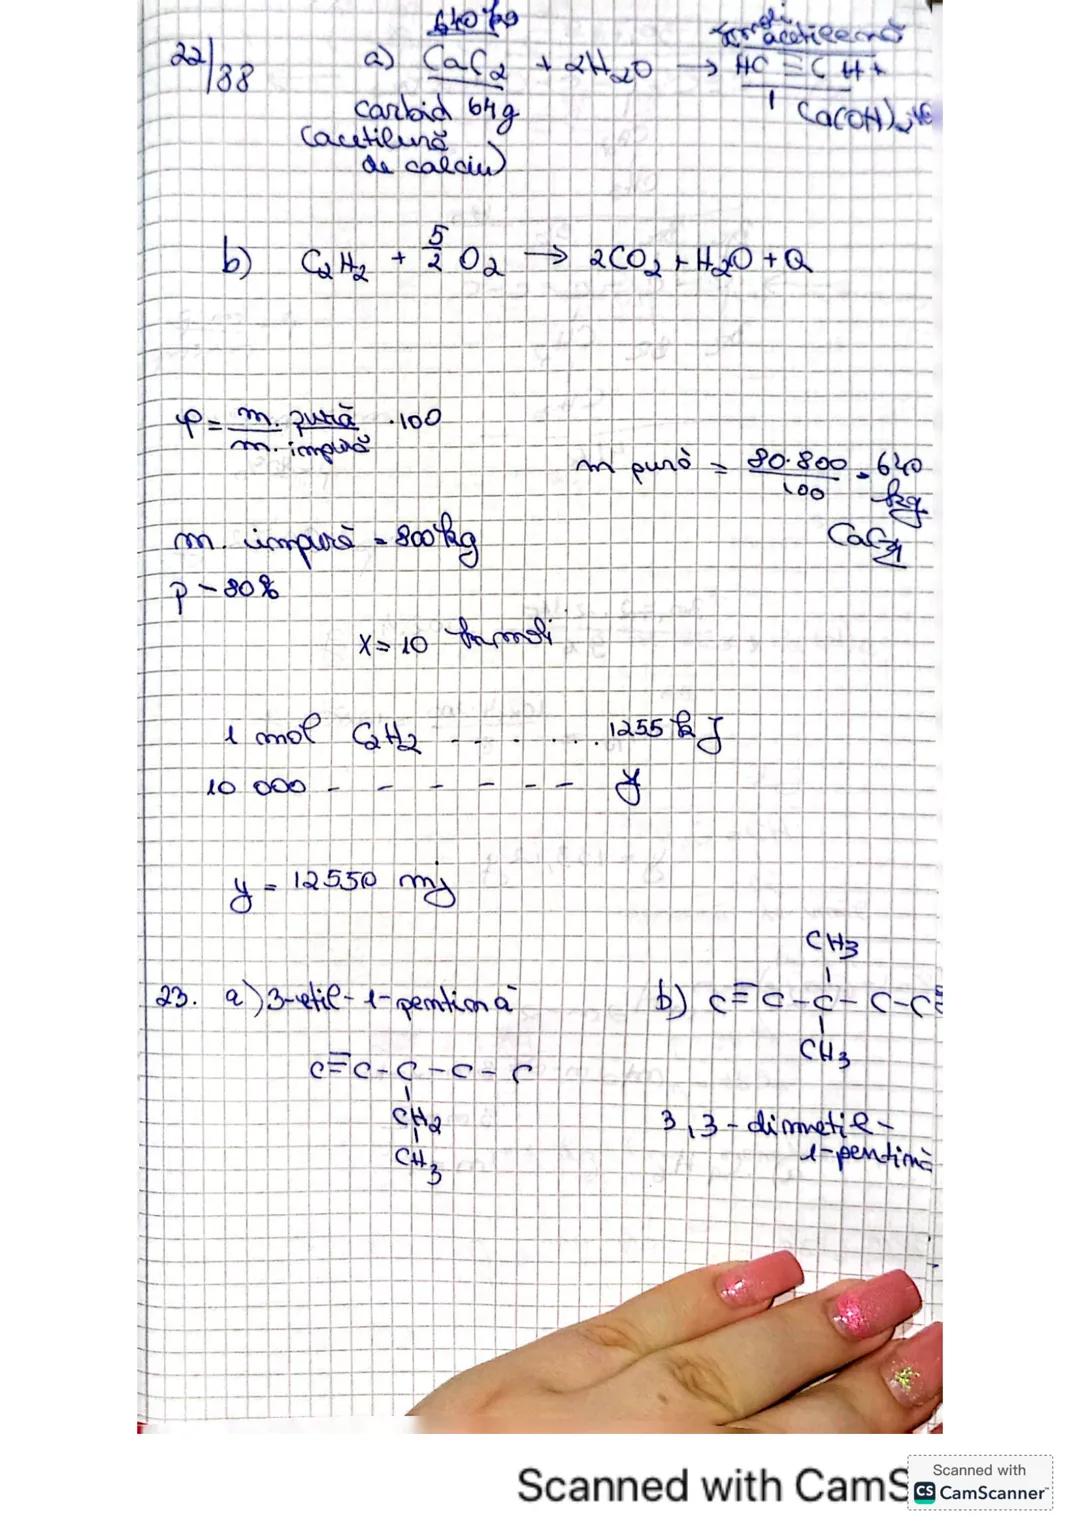 640 kg
acetilenă
22/38 a) CaC2 + 2H2O → HC≡CH +
carbid 64g 1 Ca(OH)2
(acetilură
de calciu)
b) C2H2 + 5/2 O2 → 2CO2 + H2O + Q
p = m. pură / m. impură · 100
m pură = 80·800 / 100 = 640 kg
CaC2
m. impură = 800 kg
p - 80%
x = 10 kmoli
1 mol C2H2 ....... 1255 kJ
10 000 - - - - - - y
y = 12550 mj
23. a) 3-etil-1-pentină
C≡C-C-C-C
CH2
CH3
b) CH3
C≡C-C-C-C
CH3
3,3-dimetil-
1-pentină
Scanned with CamS
Scanned with
CS CamScanner